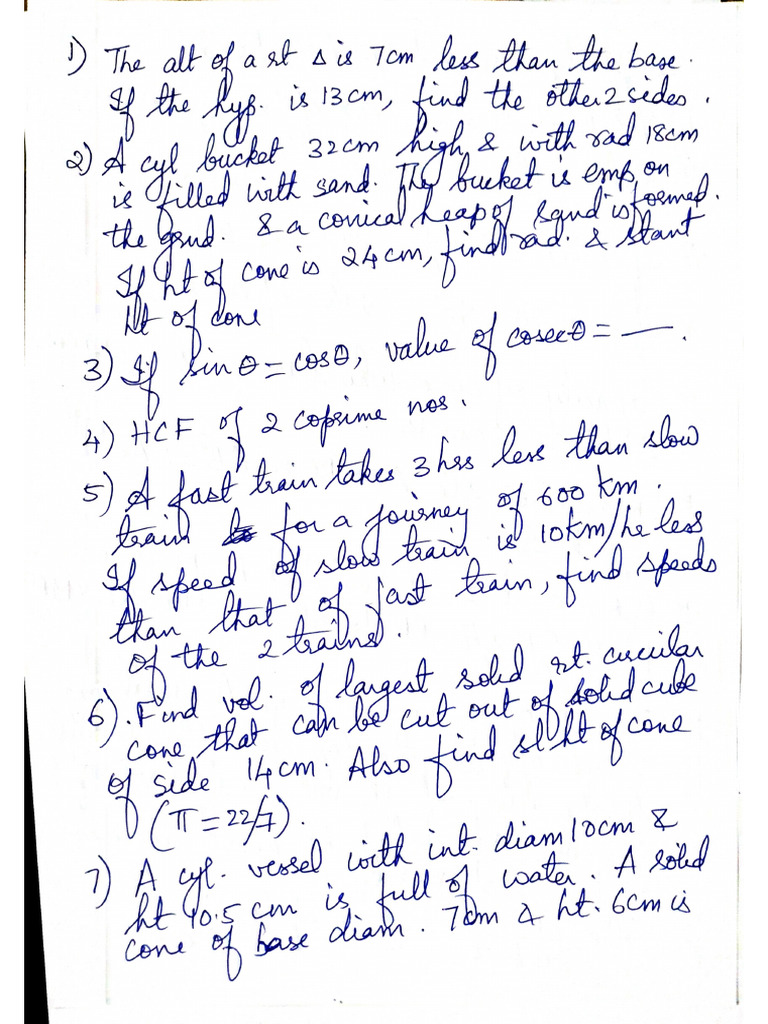 1) The alt of a rt Δ is 7cm less than the base.
If the hyp. is 13cm, find the other 2 sides.
2) A cyl bucket 32cm high & with rad 18cm
is filled with sand. The bucket is emp. on
the grnd. & a conical heap of sand is formed.
If ht of cone is 24cm, find rad. & slant
ht of cone
3) If sin θ = cosθ, value of cosecθ = —.
4) HCF of 2 coprime nos.
5) A fast train takes 3hrs less than slow
train for a journey of 600 km.
If speed of slow train is 10km/hr less
than that of fast train, find speeds
of the 2 trains.
6). Find vol. of largest solid rt. circular
cone that can be cut out of solid cube
of side 14cm. Also find sl ht of cone
(π = 22/7).
7) A cyl. vessel with int. diam 10cm &
ht 10.5 cm is full of water. A solid
cone of base diam. 7cm & ht. 6cm is